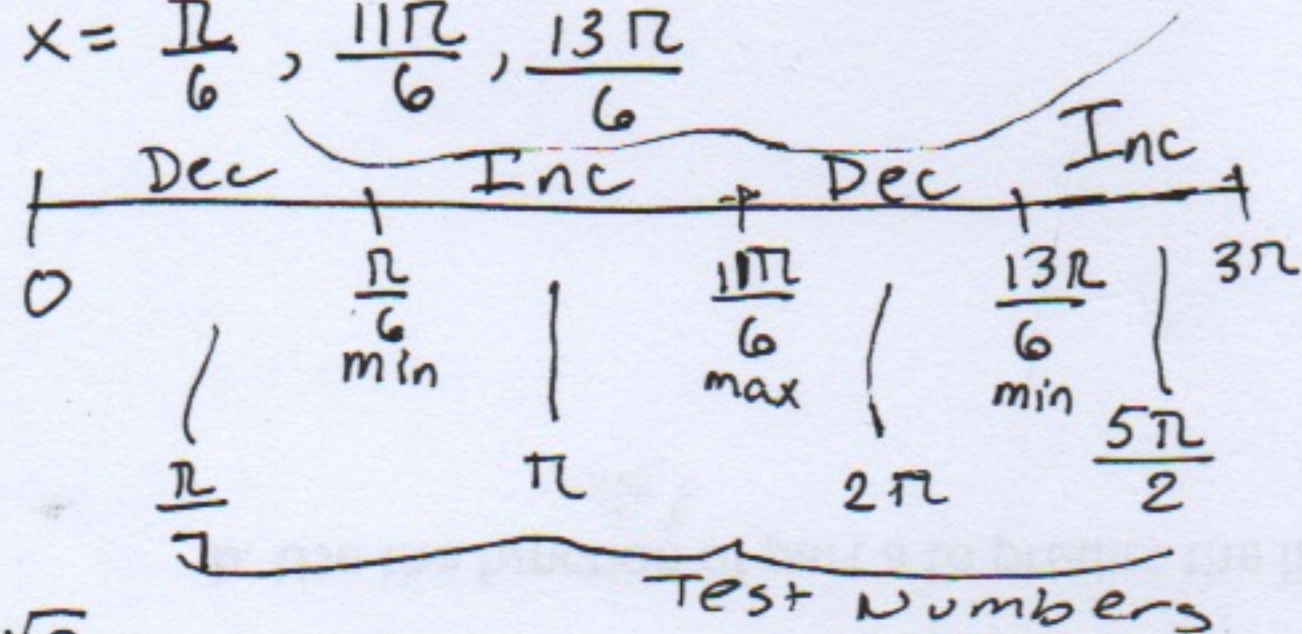 x = π/6 , 11π/6 , 13π/6
Dec Inc Dec Inc
0 π/6 11π/6 13π/6 3π
min max min
π/7 π 2π 5π/2
Test Numbers